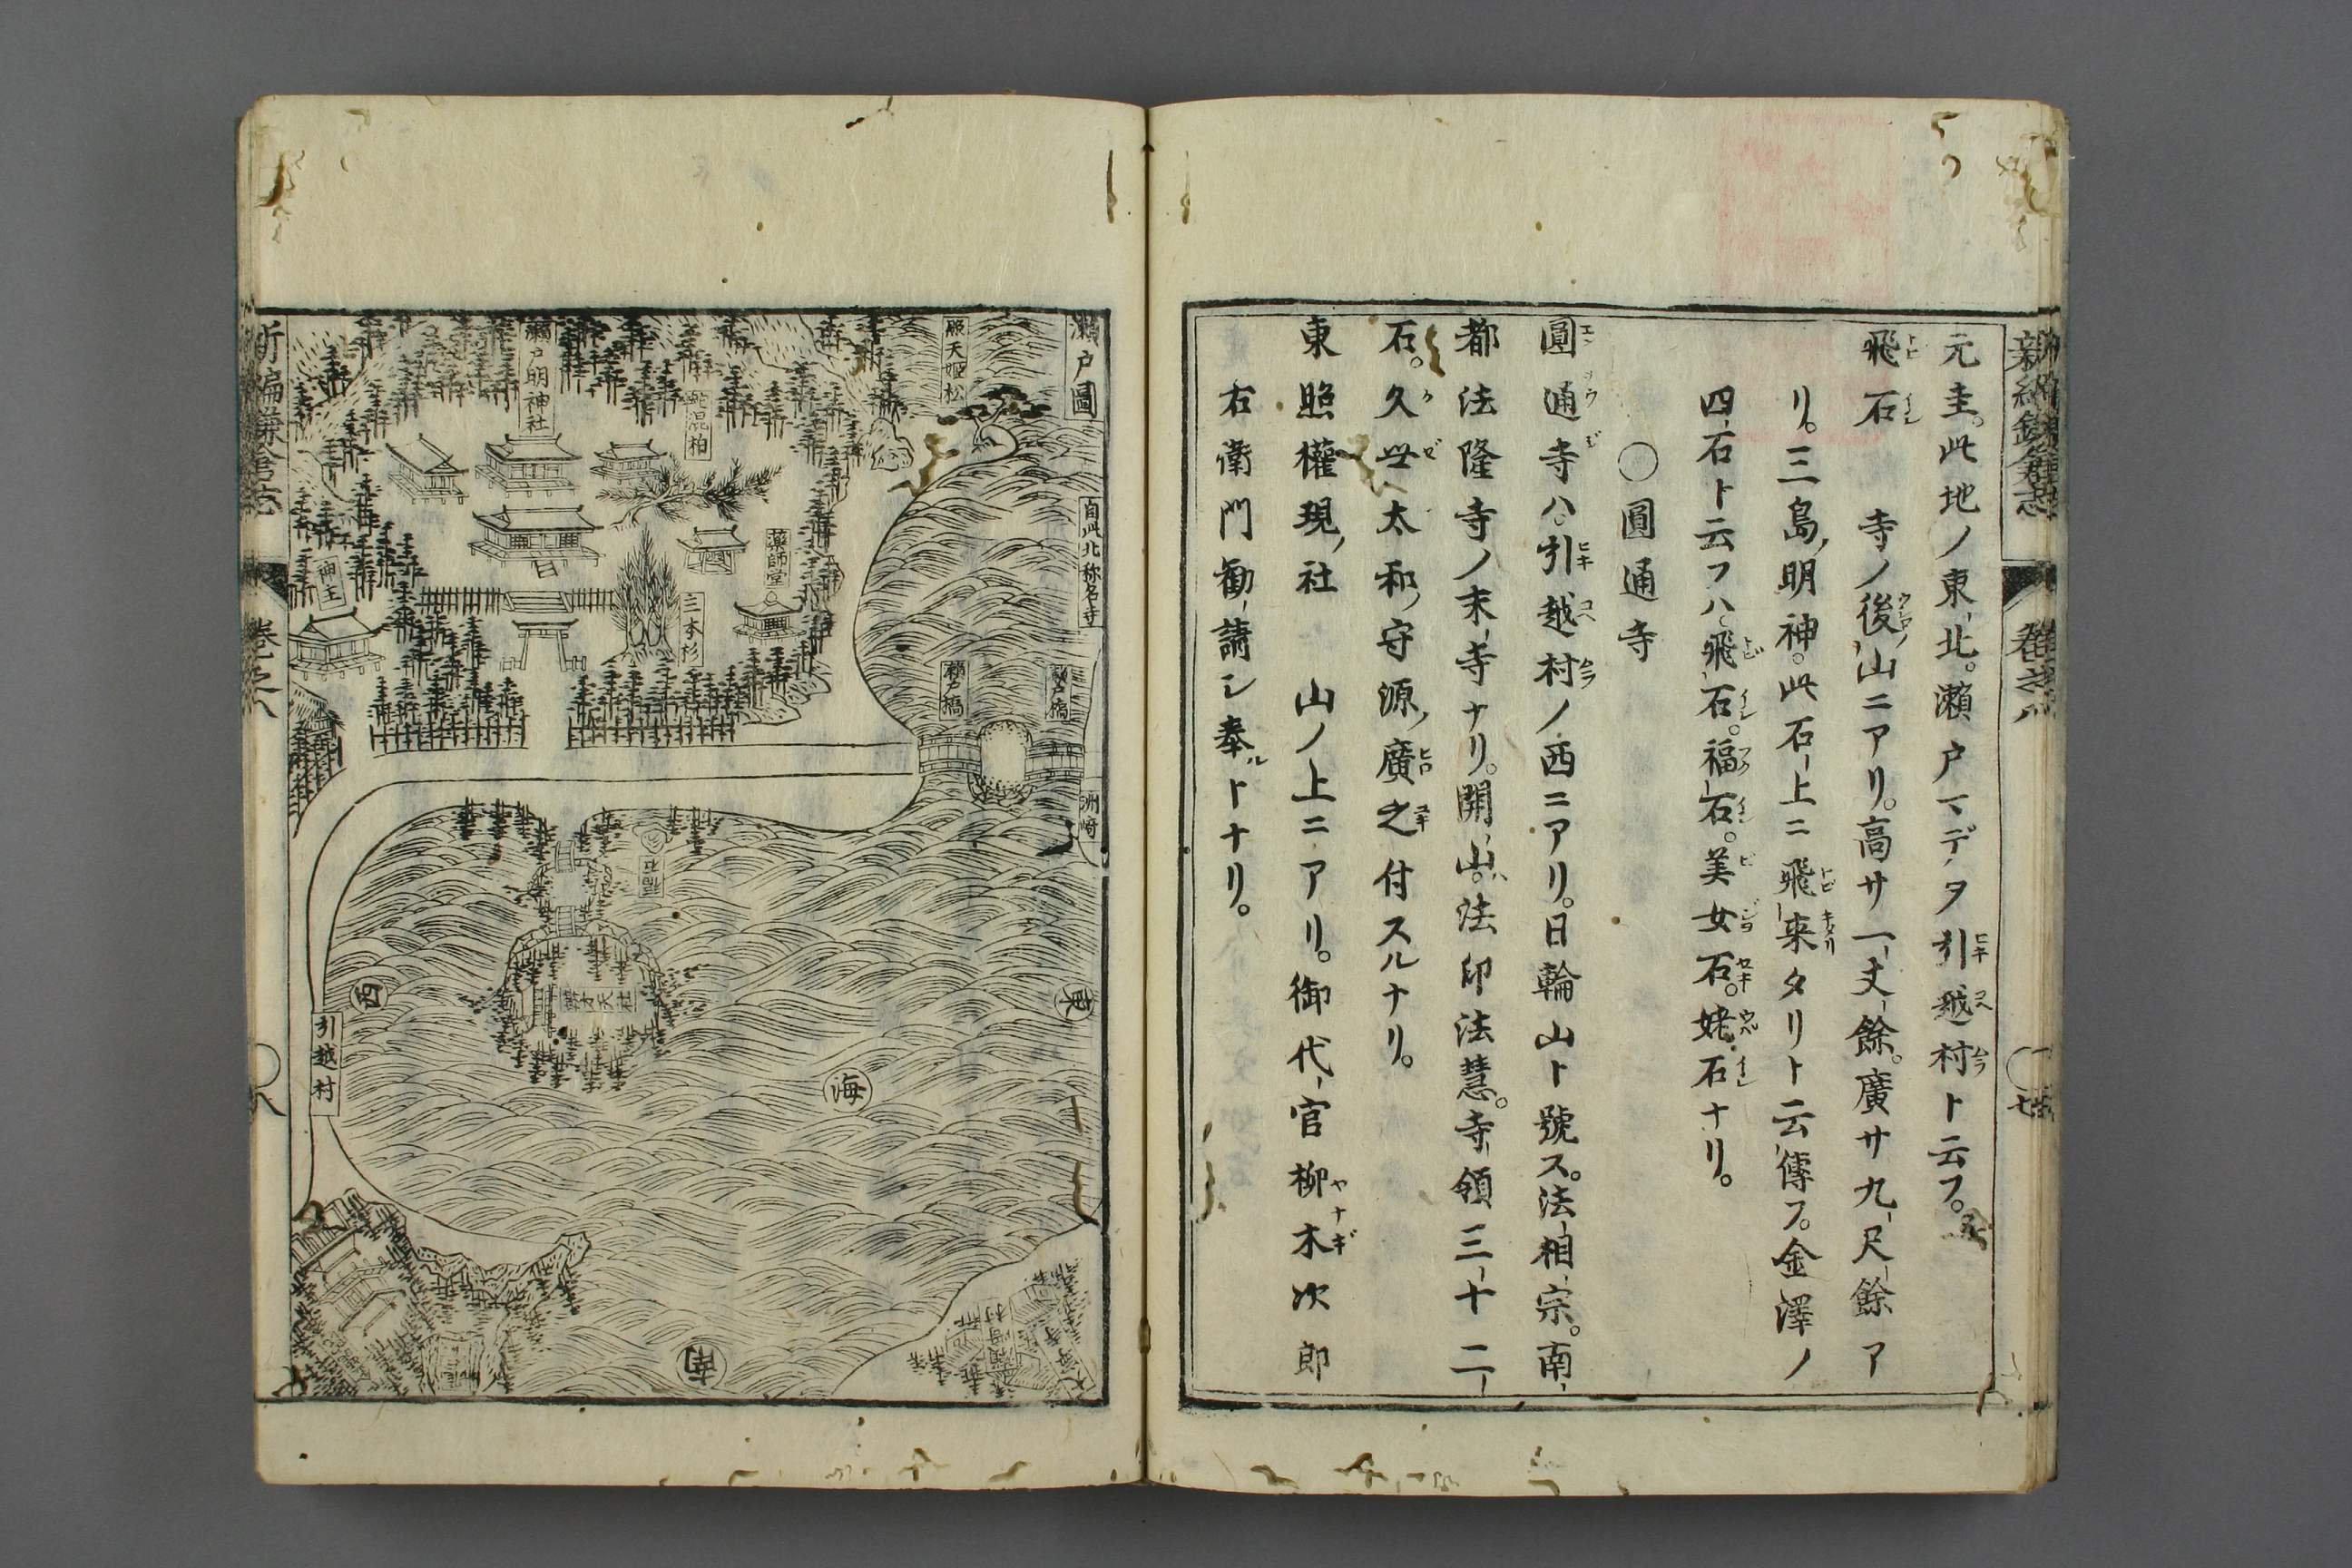 元圭。此地ノ東北。瀬戸マデヲ引越村ト云フ。
飛石 寺ノ後山ニアリ。高サ一丈餘。廣サ九尺餘ア
リ。三島ノ明神。此石上ニ飛来タリト云傳フ。金澤ノ
四石ト云フハ飛石。福石。美女石。姥石ナリ。
〇圓通寺
圓通寺ハ引越村ノ西ニアリ。日輪山ト號ス。法相宗。南
都法隆寺ノ末寺ナリ。開山ハ法印法慧。寺領三十二
石。久世太和ノ守源ノ廣之付スルナリ。
東照權現ノ社 山ノ上ニアリ。御代官柳木次郎
右衛門勧請シ奉ルトナリ。
瀬戸圖
自此北称名寺
瀬戸橋
洲崎
東
照天姫松
瀬戸橋
海
薬師堂
三本杉
蛇混柏
瀬戸明神社
南
辨才天社
神主
西
引越村
新編鎌倉志
巻之八